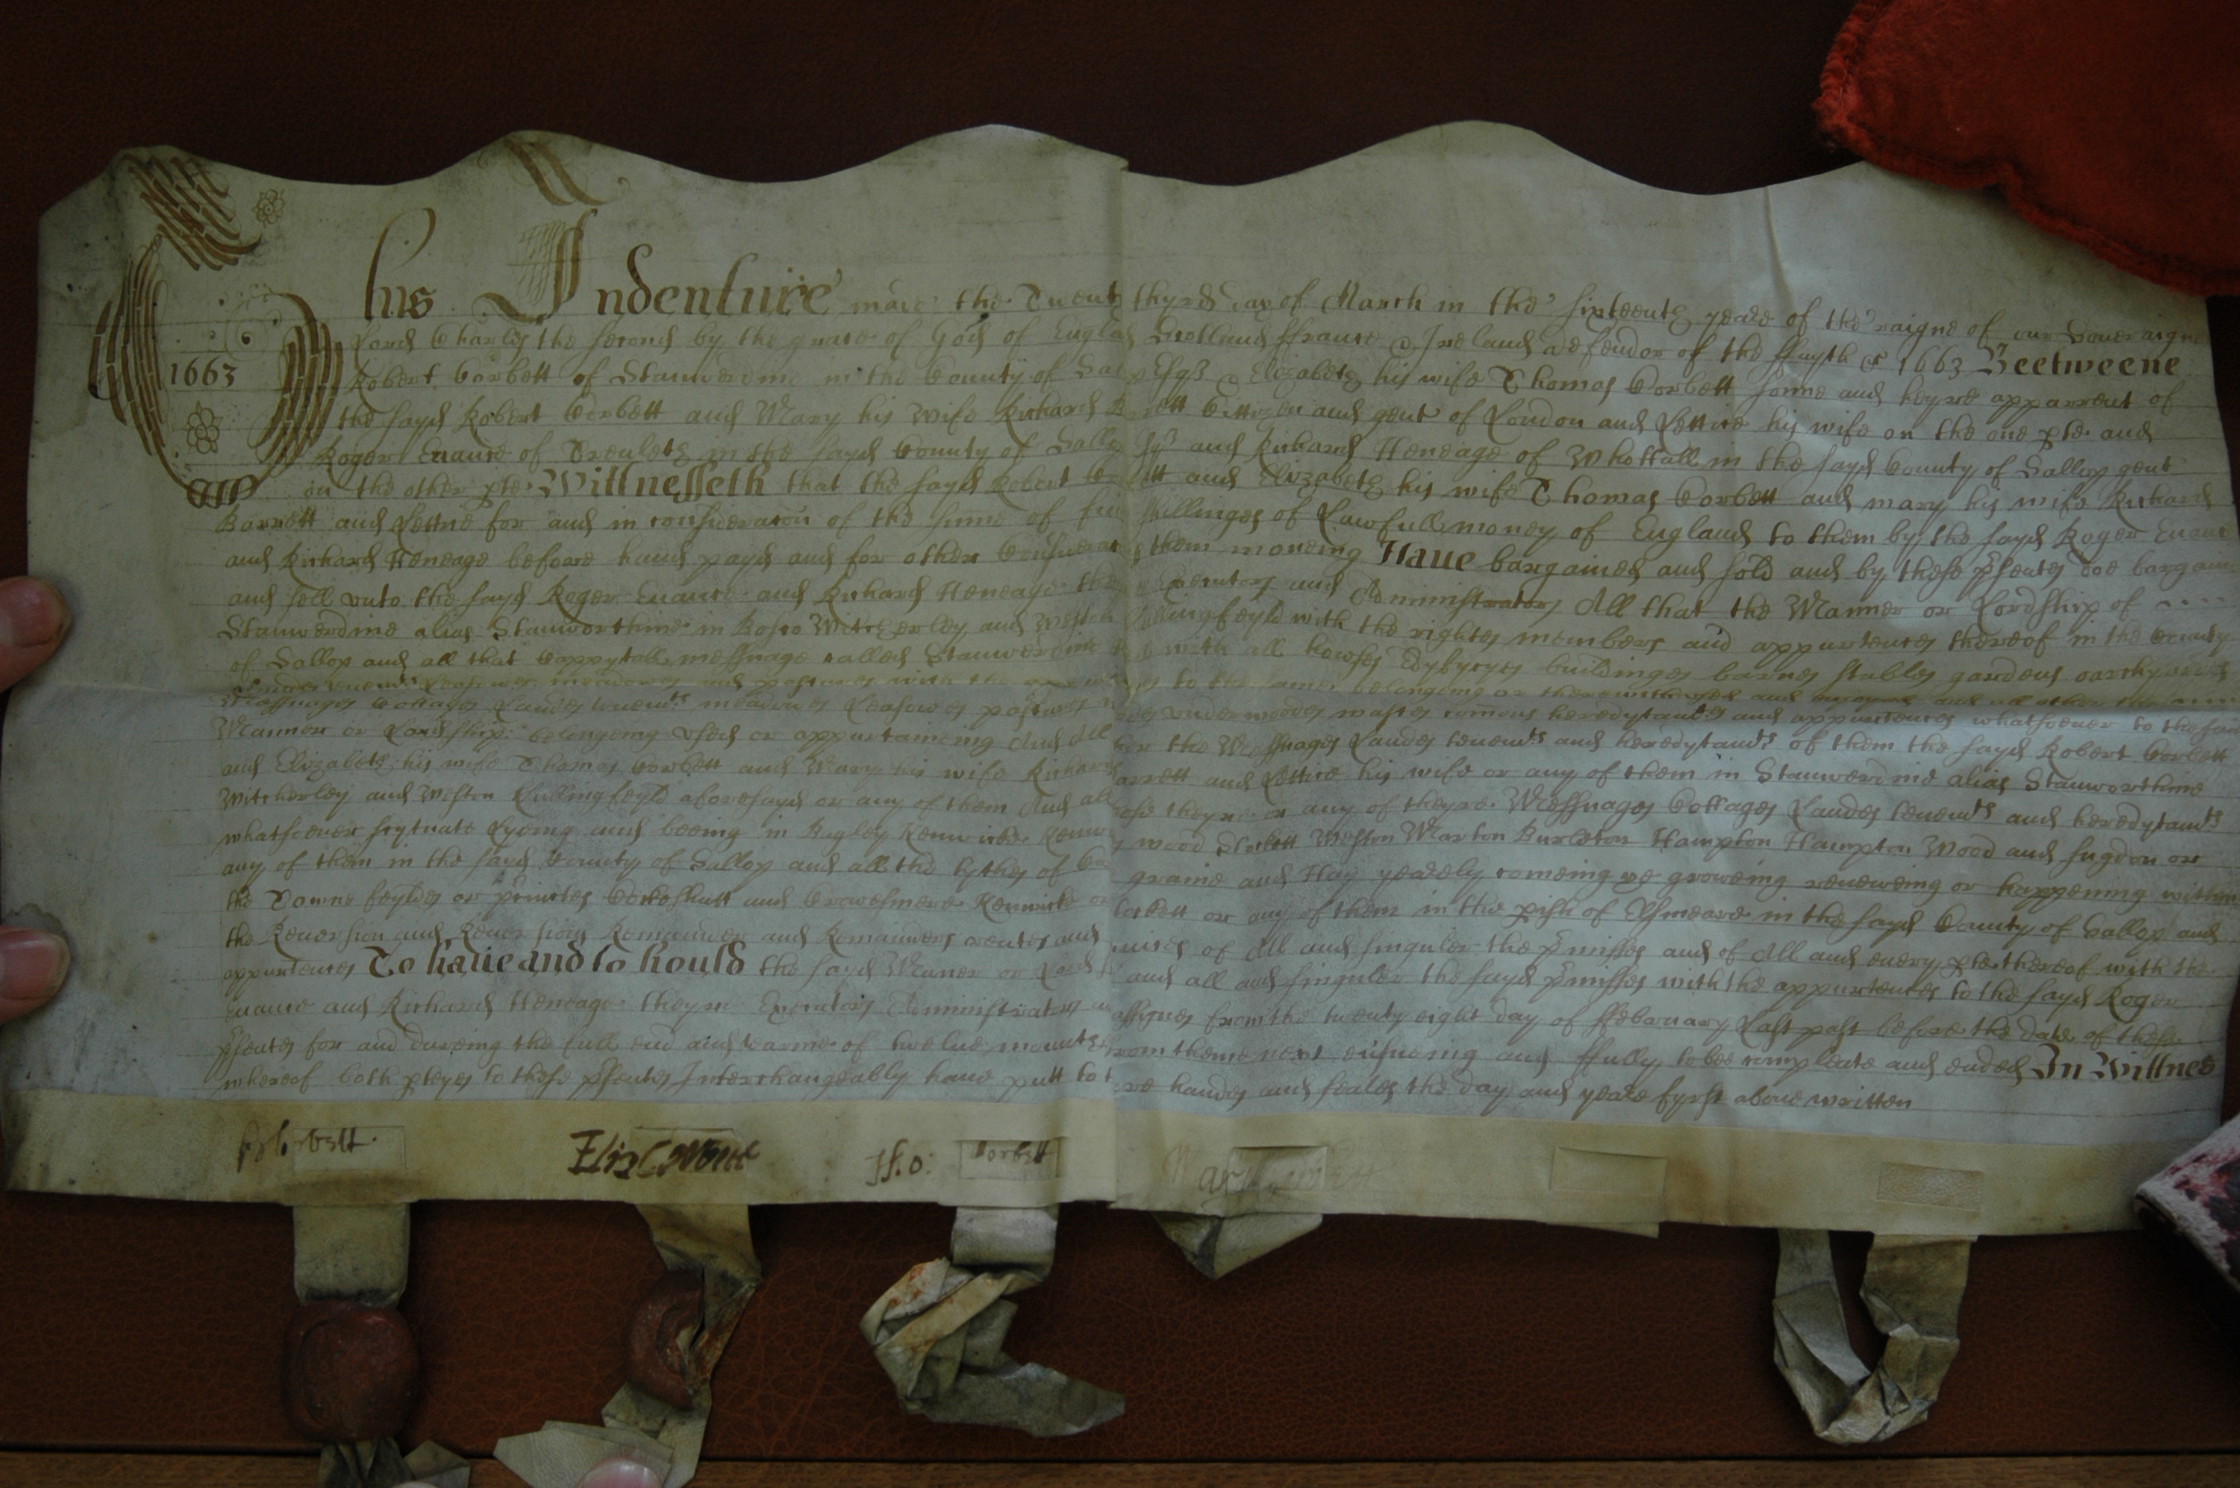 This Indenture made the Twenty thyrd day of March in the sixteenth yeare of the raigne of our Soueraigne
1663
Lord Charles the second by the grace of God of England Scotland ffrance & Ireland defendor of the ffayth &c 1663 Beetweene
Robert Corbett of Stanwerdine in the County of Esqs & Elizabeth his wife Thomas Corbett sonne and heyre apparent of
the sayd Robert Corbett and Mary his wife Richard Barrett Cittizen and gent of London and Lettice his wife on the one pte and
Roger Euance of Treuleth in the sayd County of Sallop and Richard Heneage of Whottall in the sayd County of Sallop gent
on the other pte Wittnesseth that the sayd Robert Corbett and Elizabeth his wife Thomas Corbett and mary his wife Richard
Barrett and Lettice for and in consideracon of the sume of fiue shillinges of Lawfull money of England to them by the sayd Roger Euance
and Richard Heneage before hand payd and for other them moueing Haue bargained and sold and by these psentes doe bargaine
and sell vnto the sayd Roger Euance and Richard Heneage Executors and Administrators All that the Mannor or Lordship of
Stanwerdine alias Stanworthine in Witcherley and Weston Lullingfeyld with the rightes members and appurtences thereof in the County
of Sallop and all that Cappytall messuage called Stanwerdine with all howses Edyfyces buildinges barnes stables gardens
Leasowes meadowes and pastures with the to the same belongeing or and all other the
Messuages Cottages Landes tenemts meadowes Leasowes pastures vnderwoodes wastes comons heredytamts and appurtences whatsoeuer to the sayd
Mannor or Lordship belongeing vsed or appurtaineing And All other the Messuages Landes tenemts and heredytamts of them the sayd Robert Corbett
and Elizabeth his wife Thomas Corbett and Mary his wife Richard Barrett and Lettice his wife or any of them in Stanwerdine alias Stanworthine
Witcherley and Weston Lullingfeyld aforesayd or any of them And all those theyre or any of theyre Messuages Cottages Landes tenemts and heredytamts
whatsoeuer scytuate Lyeing and beeing in Bagley Kenwicke wood Stockett Weston Marton Burleton Hampton Hampton Wood and Sugdon or
any of them in the sayd County of Sallop and all the tythes of graine and Hay yearely comeing groweing reneweing or happening within
the Towne feyldes or Cockshutt and Crowesmere Kenwicke or any of them in the pish of Elsmeare in the sayd County of Sallop and
the Reuersion and Reuersions Remainder and Remainders rentes and of All and singuler the pmisses and of All and euery pte thereof with the
appurtences To haue and to hould the sayd Manor or Lordship and all and singuler the sayd pmisses with the appurtences to the sayd Roger
Euance and Richard Heneage theyre Executors Administrators assignes from the twenty eight day of ffebruary Last past before the date of these
psentes for and dureing the full end and tearme of twelue from thence next ensueing and ffully to bee compleate and ended In Wittnes
whereof both pteyes to these psentes Interchangeably haue putt handes and seales the day and yeare fyrst aboue written
Corbett
Eliz Corbett
Tho: Corbett
Mary Corbett